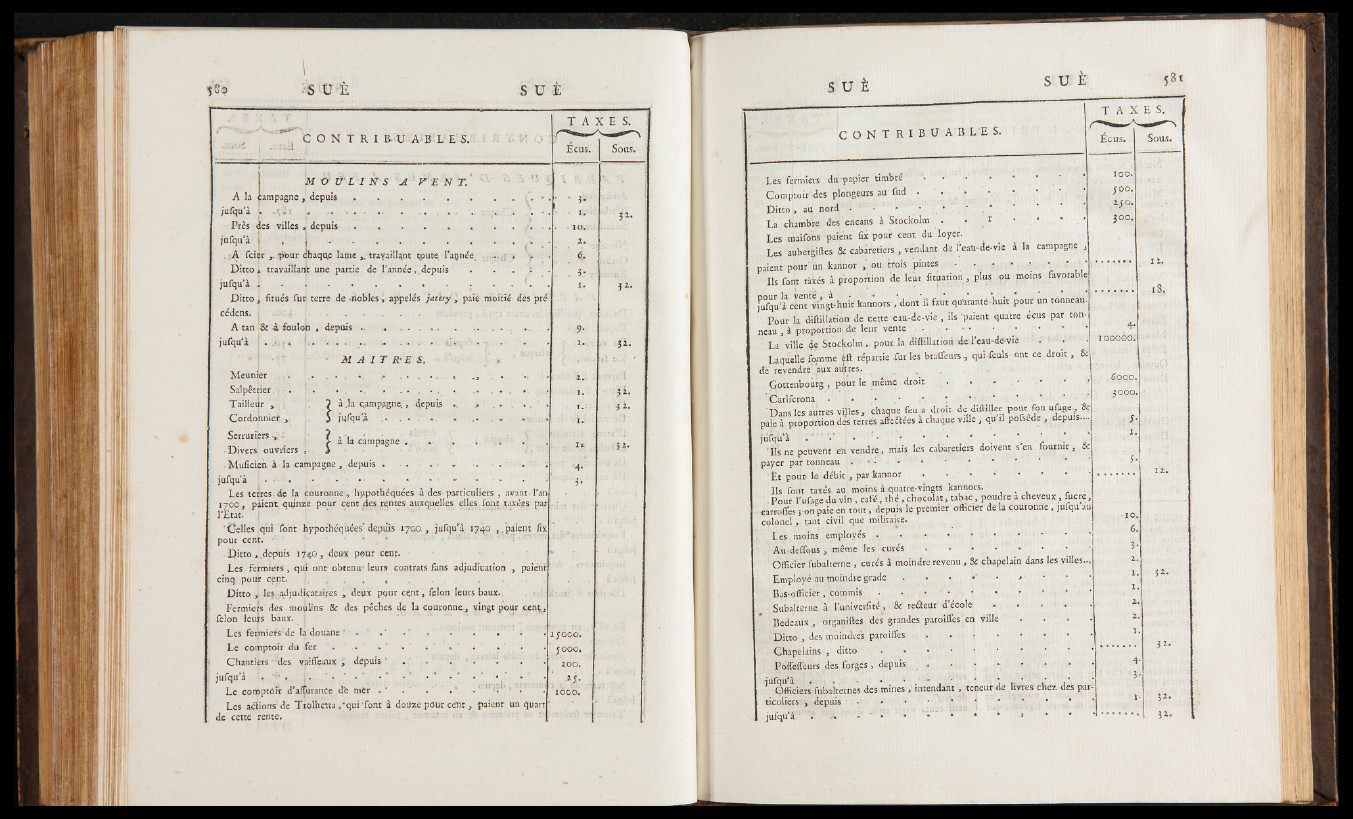 580 SUÈ SUÈ
CONTRIBUABLES. TAXES.
Écus. Sous.
MOULINS A VENT.
A la campagne, depuis . . . . . . . . 3.
jusqu'à . . . . . . . . . . 1. 32.
Près des villes, depuis . . . . . . . . 10.
jusqu'à . . . . . . . . . . 2.
A scier, pour chaque lame, travaillant toute l'année . . . 6.
Ditto, travaillant une partie de l'année, depuis . . . . 3.
jusqu'à . . . . . . . . . . 1. 32.
Ditto, situés sur terre de nobles, appelés jatery, paie moitié des pré
cédens.
A tan & à foulon, depuis . . . . . . . . 9.
jusqu'à . . . . . . . . . . 1. 32.
MAITRES.
Meunier . . . . . . . . . . 2.
Salpêtrier . . . . . . . . . . 1. 32.
Tailleur, } à la campagne, depuis . . . . . . 1. 32.
Cordonnier, } jusqu'à . . . . . . . 1.
Serruriers, } à la campagne . . . . . . . 1. 32.
Divers ouvriers, }
Musicien à la campagne, depuis . . . . . . . 4.
jusqu'à . . . . . . . . . . 3.
Les terres de la couronne, hypothéquées à des particuliers, avant l'an
1700, paient quinze pour cent des rentes auxquelles elles sont taxées par
l'État.
Celles qui sont hypothéquées depuis 1700, jusqu'à 1740, paient six
pour cent.
Ditto, depuis 1740, deux pour cent.
Les fermiers, qui ont obtenu leurs contrats sans adjudication, paient
cinq pour cent.
Ditto, les adjudicataires, deux pour cent, selon leurs baux.
Fermiers des moulins & des pêches de la couronne, vingt pour cent,
selon leurs baux.
Les fermiers de la douane . . . . . . . . 15000.
Le comptoir du fer . . . . . . . . . 5000.
Chantiers des vaisseaux, depuis . . . . . . . 200.
jusqu'à . . . . . . . . . . 25.
Le comptoir d'assurance de mer . . . . . . . 1000.
Les actions de Trolhetta, qui sont à douze pour cent, paient un quart
de cette rente.
SUÈ SUÈ 581
CONTRIBUABLES. TAXES.
Écus. Sous.
Les fermiers du papier timbré . . . . . . . 100.
Comptoir des plongeurs au sud . . . . . . . 500.
Ditto, au nord . . . . . . . . . 250.
La chambre des encans à Stockolm . . . . . . 300.
Les maisons paient six pour cent du loyer.
Les aubergistes & cabaretiers, vendant de l'eau-de-vie à la campagne,
paient pour un kannor, ou trois pintes . . . . . . . 12.
Ils sont taxés à proportion de leur situation, plus ou moins favorable
pour la vente, à . . . . . . . . . 18.
jusqu'à cent vingt-huit kannors, dont il faut quarante-huit pour un tonneau.
Pour la distillation de cette eau-de-vie, ils paient quatre écus par ton-
neau, à proportion de leur vente . . . . . . . 4.
La ville de Stockolm, pour la distillation de l'eau-de-vie . . . 100000.
Laquelle somme est répartie sur les brasseurs, qui seuls ont ce droit, &
de revendre aux autres.
Gottenbourg, pour le même droit . . . . . . 6000.
Carlscrona . . . . . . . . . . 3000.
Dans les autres villes, chaque feu a droit de distiller pour son usage, &
paie à proportion des terres affectées à chaque ville, qu'il possède, depuis.... 5.
jusqu'à . . . . . . . . . . 1.
Ils ne peuvent en vendre, mais les cabaretiers doivent s'en fournir, &
payer par tonneau . . . . . . . . . 5.
Et pour le débit, par kannor . . . . . . . 12.
Ils sont taxés au moins à quatre-vingts kannors.
Pour l'usage du vin, café, thé, chocolat, tabac, poudre à cheveux, sucre,
carrosses; on paie en tout, depuis le premier officier de la couronne, jusqu'au
colonel, tant civil que militaire. 10.
Les moins employés . . . . . . . . 6.
Au-dessous, même les curés . . . . . . . 3.
Officier subalterne, curés à moindre revenu, & chapelain dans les villes... 2.
Employé au moindre grade . . . . . . . 1. 32.
Bas-officier, commis . . . . . . . . 1.
Subalterne à l'université, & recteur d'école . . . . 2.
Bedeaux, organistes des grandes paroisses en ville . . . . 2.
Ditto, des moindres paroisses . . . . . . . 1.
Chapelains, ditto . . . . . . . . . 32.
Possesseurs des forges, depuis . . . . . . . 4.
jusqu'à . . . . . . . . . . 3.
Officiers subalternes des mines, intendant, teneur de livres chez des par-
ticuliers, depuis . . . . . . . . . 1. 32.
jusqu'à . . . . . . . . . . 32.